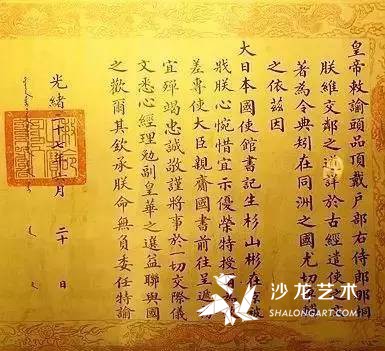 皇帝敕諭頭品頂戴戶部右侍郎那桐
朕維交鄰之道詳於古經遣使之文
著為令典矧在同洲之國尤切
之依茲因
大日本國使館書記生杉山彬在京被
戕朕心惋惜宜示優榮特授
差專使大臣親齎國書前往呈遞
宜殫竭忠誠敬謹將事於一切交際儀
文悉心經理勉副皇華之選益聯與國
之歡爾其欽承朕命無負委任特諭
光緒 十七年 月二十日
沙龙艺术
SHALONGART.COM